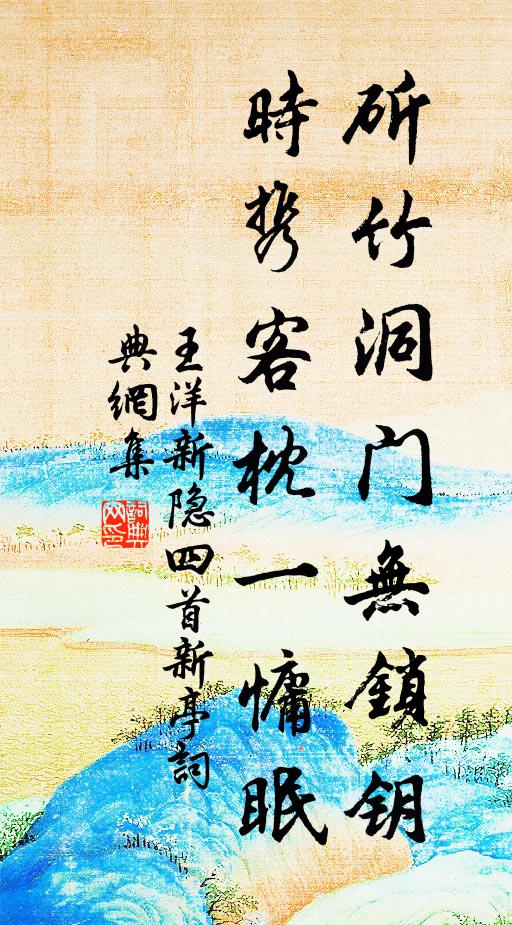 斫竹洞门無鎖鑰
時携客枕一慵眠
王洋新隐四首新亭詞
典網集
詞典
网印